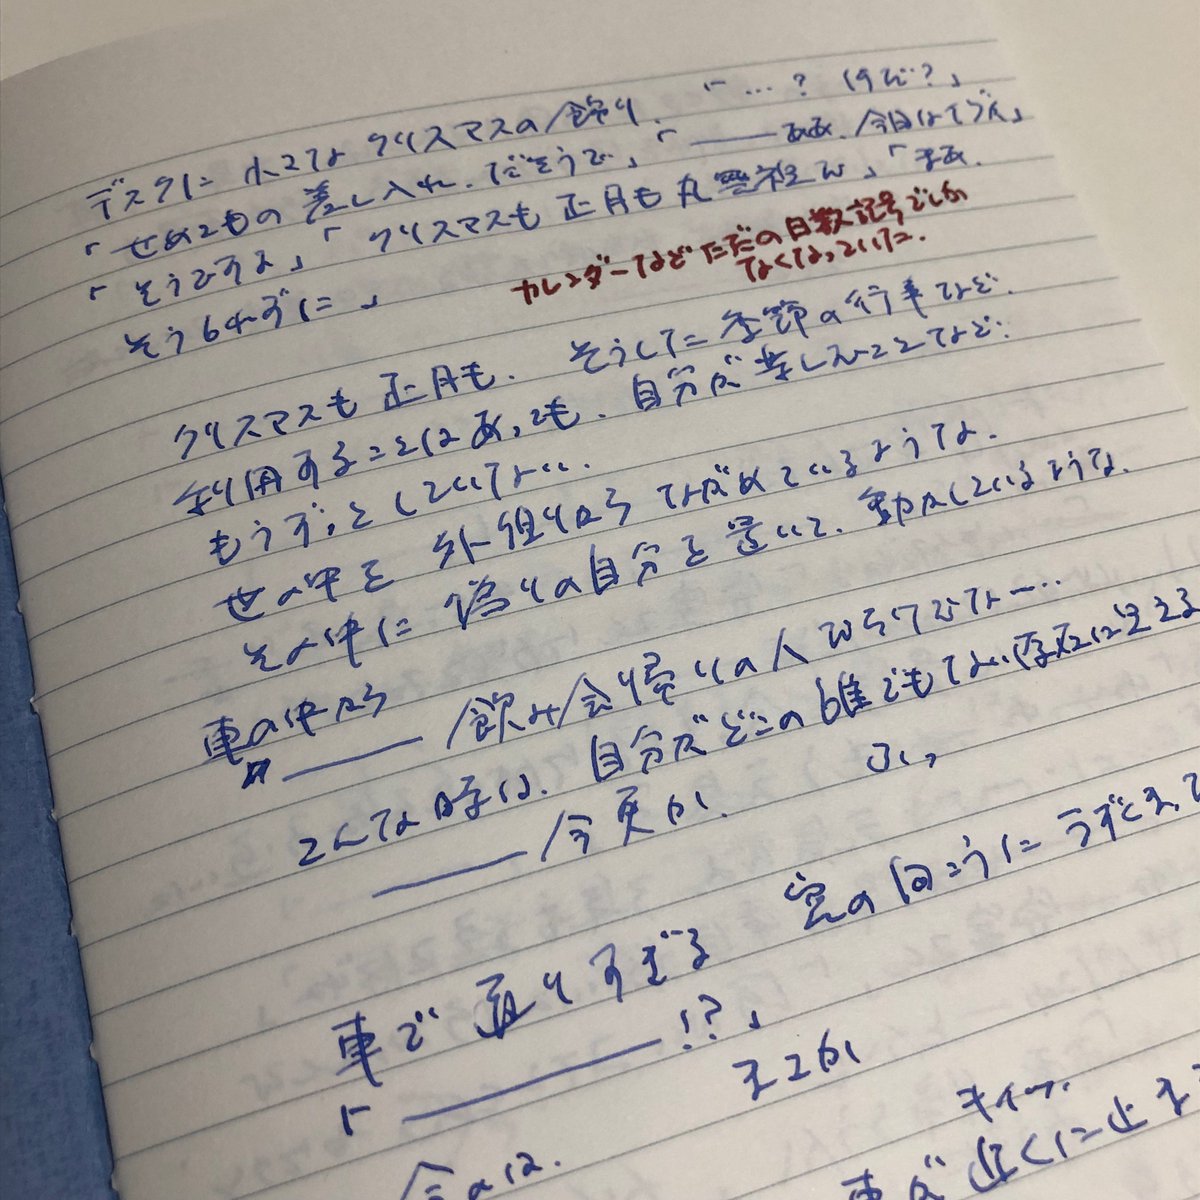 デスクに 小さな クリスマスの飾り. 「…? 何だ?」
「せめてもの差し入れ. だそうで」「――ああ. 今日はイブか」
「そうですよ」「クリスマスも正月も 」「まあ.
そう わずに」
カレンダーなどただの日数記号でしか
なくなっていた.
クリスマスも正月も. そうした季節の行事など.
利用することはあっても. 自分が楽しんだことなど:
もうずっとしていない.
世の中を 外側から ながめているような.
その中に 偽りの自分を置いて. 動かしているような.
車の中から
――飲み会帰りの人 …
こんな時は. 自分がどこの誰でもない存在に思える
――今更か. ふっ
車で通りすぎる 窓の向こうに うずくまって
「――!?」 まさか
キイッ.
今のは. 車が近くに止ま